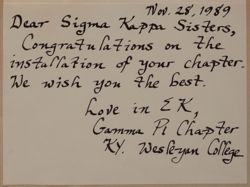 Nov. 28, 1989
Dear Sigma Kappa Sisters,
Congratulations on the
installation of your chapter.
We wish you the best.
Love in ΣK,
Gamma Pi Chapter
KY. Wesleyan College